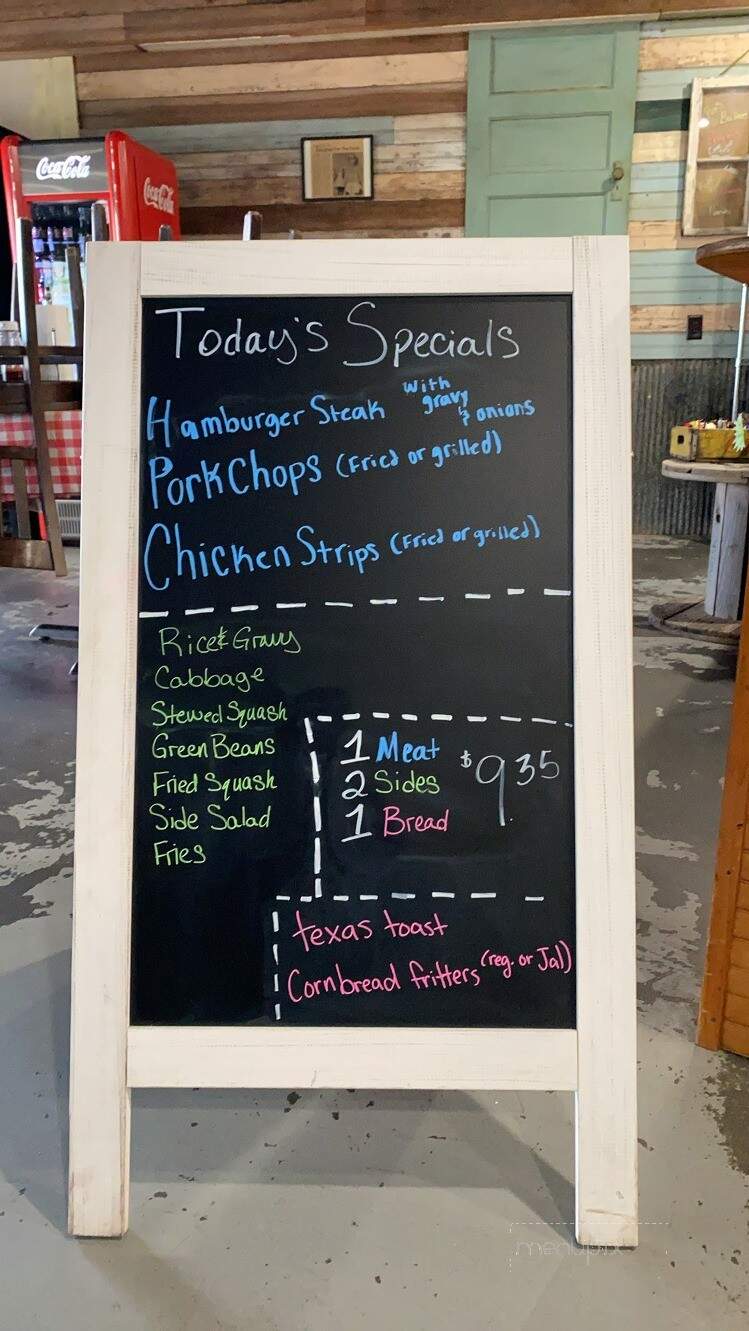 Coca-Cola
Coca-Cola
Today's Specials
Hamburger Steak with gravy & onions
Pork Chops (Fried or grilled)
Chicken Strips (Fried or grilled)
Rice & Gravy
Cabbage
Stewed Squash
Green Beans
Fried Squash
Side Salad
Fries
1 Meat $9.35
2 Sides
1 Bread
texas toast
Cornbread fritters (reg. or Jal)
menupix